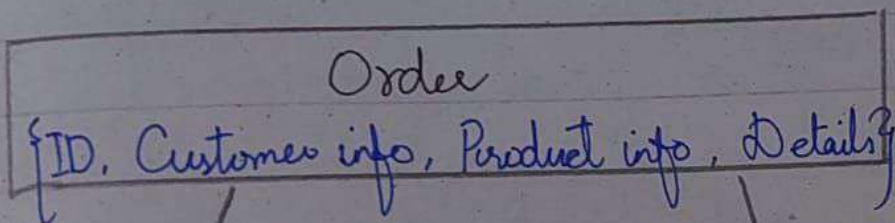 Order
{ID, Customer info, Product info, Details}